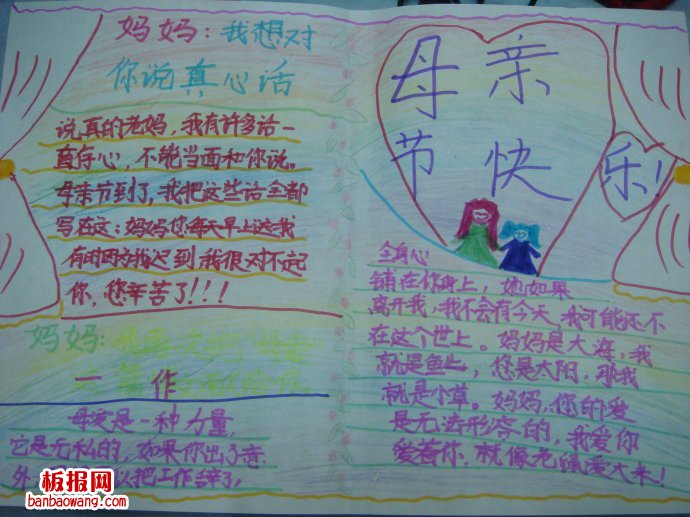 妈妈:我想对
你说真心话
说真的老妈,我有许多话一
直存心,不能当面和你说。
母亲节到了,我把这些话全都
写在这:妈妈你每天早上送我
有时因为我迟到我很对不起
你,您辛苦了!!!
妈妈:
一 作
母爱是一种力量,
它是无私的,如果你出了意
外 以把工作辞了,
母亲
节快乐!
全身心
销在你身上,她如果
离开我,我不会有今天,我可能还不
在这个世上。妈妈是大海,我
就是鱼,您是太阳,那我
就是小草。妈妈,你的爱
是无法形容的,我爱你
爱着你,就像老鼠爱大米!
板报网
banbaowang.com